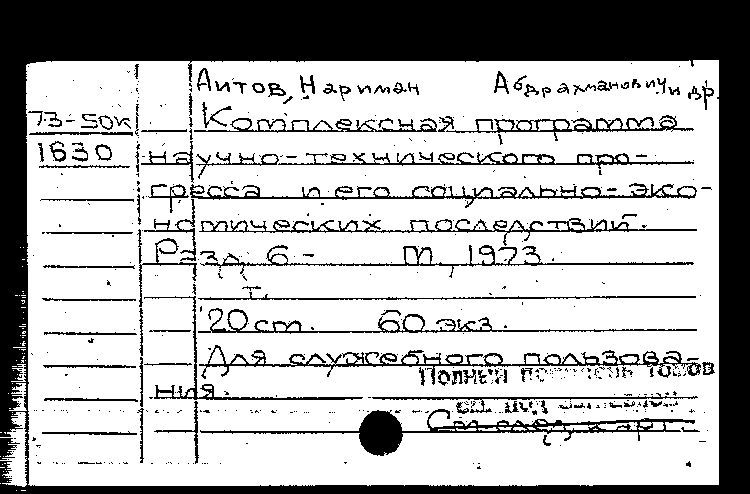 Аитов, Нариман Абдрахманович и др.
73-50к Комплексная программа
1630 научно-технического про-
гресса и его социально-эко-
номических последствий.
Разд. 6 - М., 1973.
т.
20 ст. 60 экз.
Для служебного пользова-
ния.
Полный томов
См след. карт.